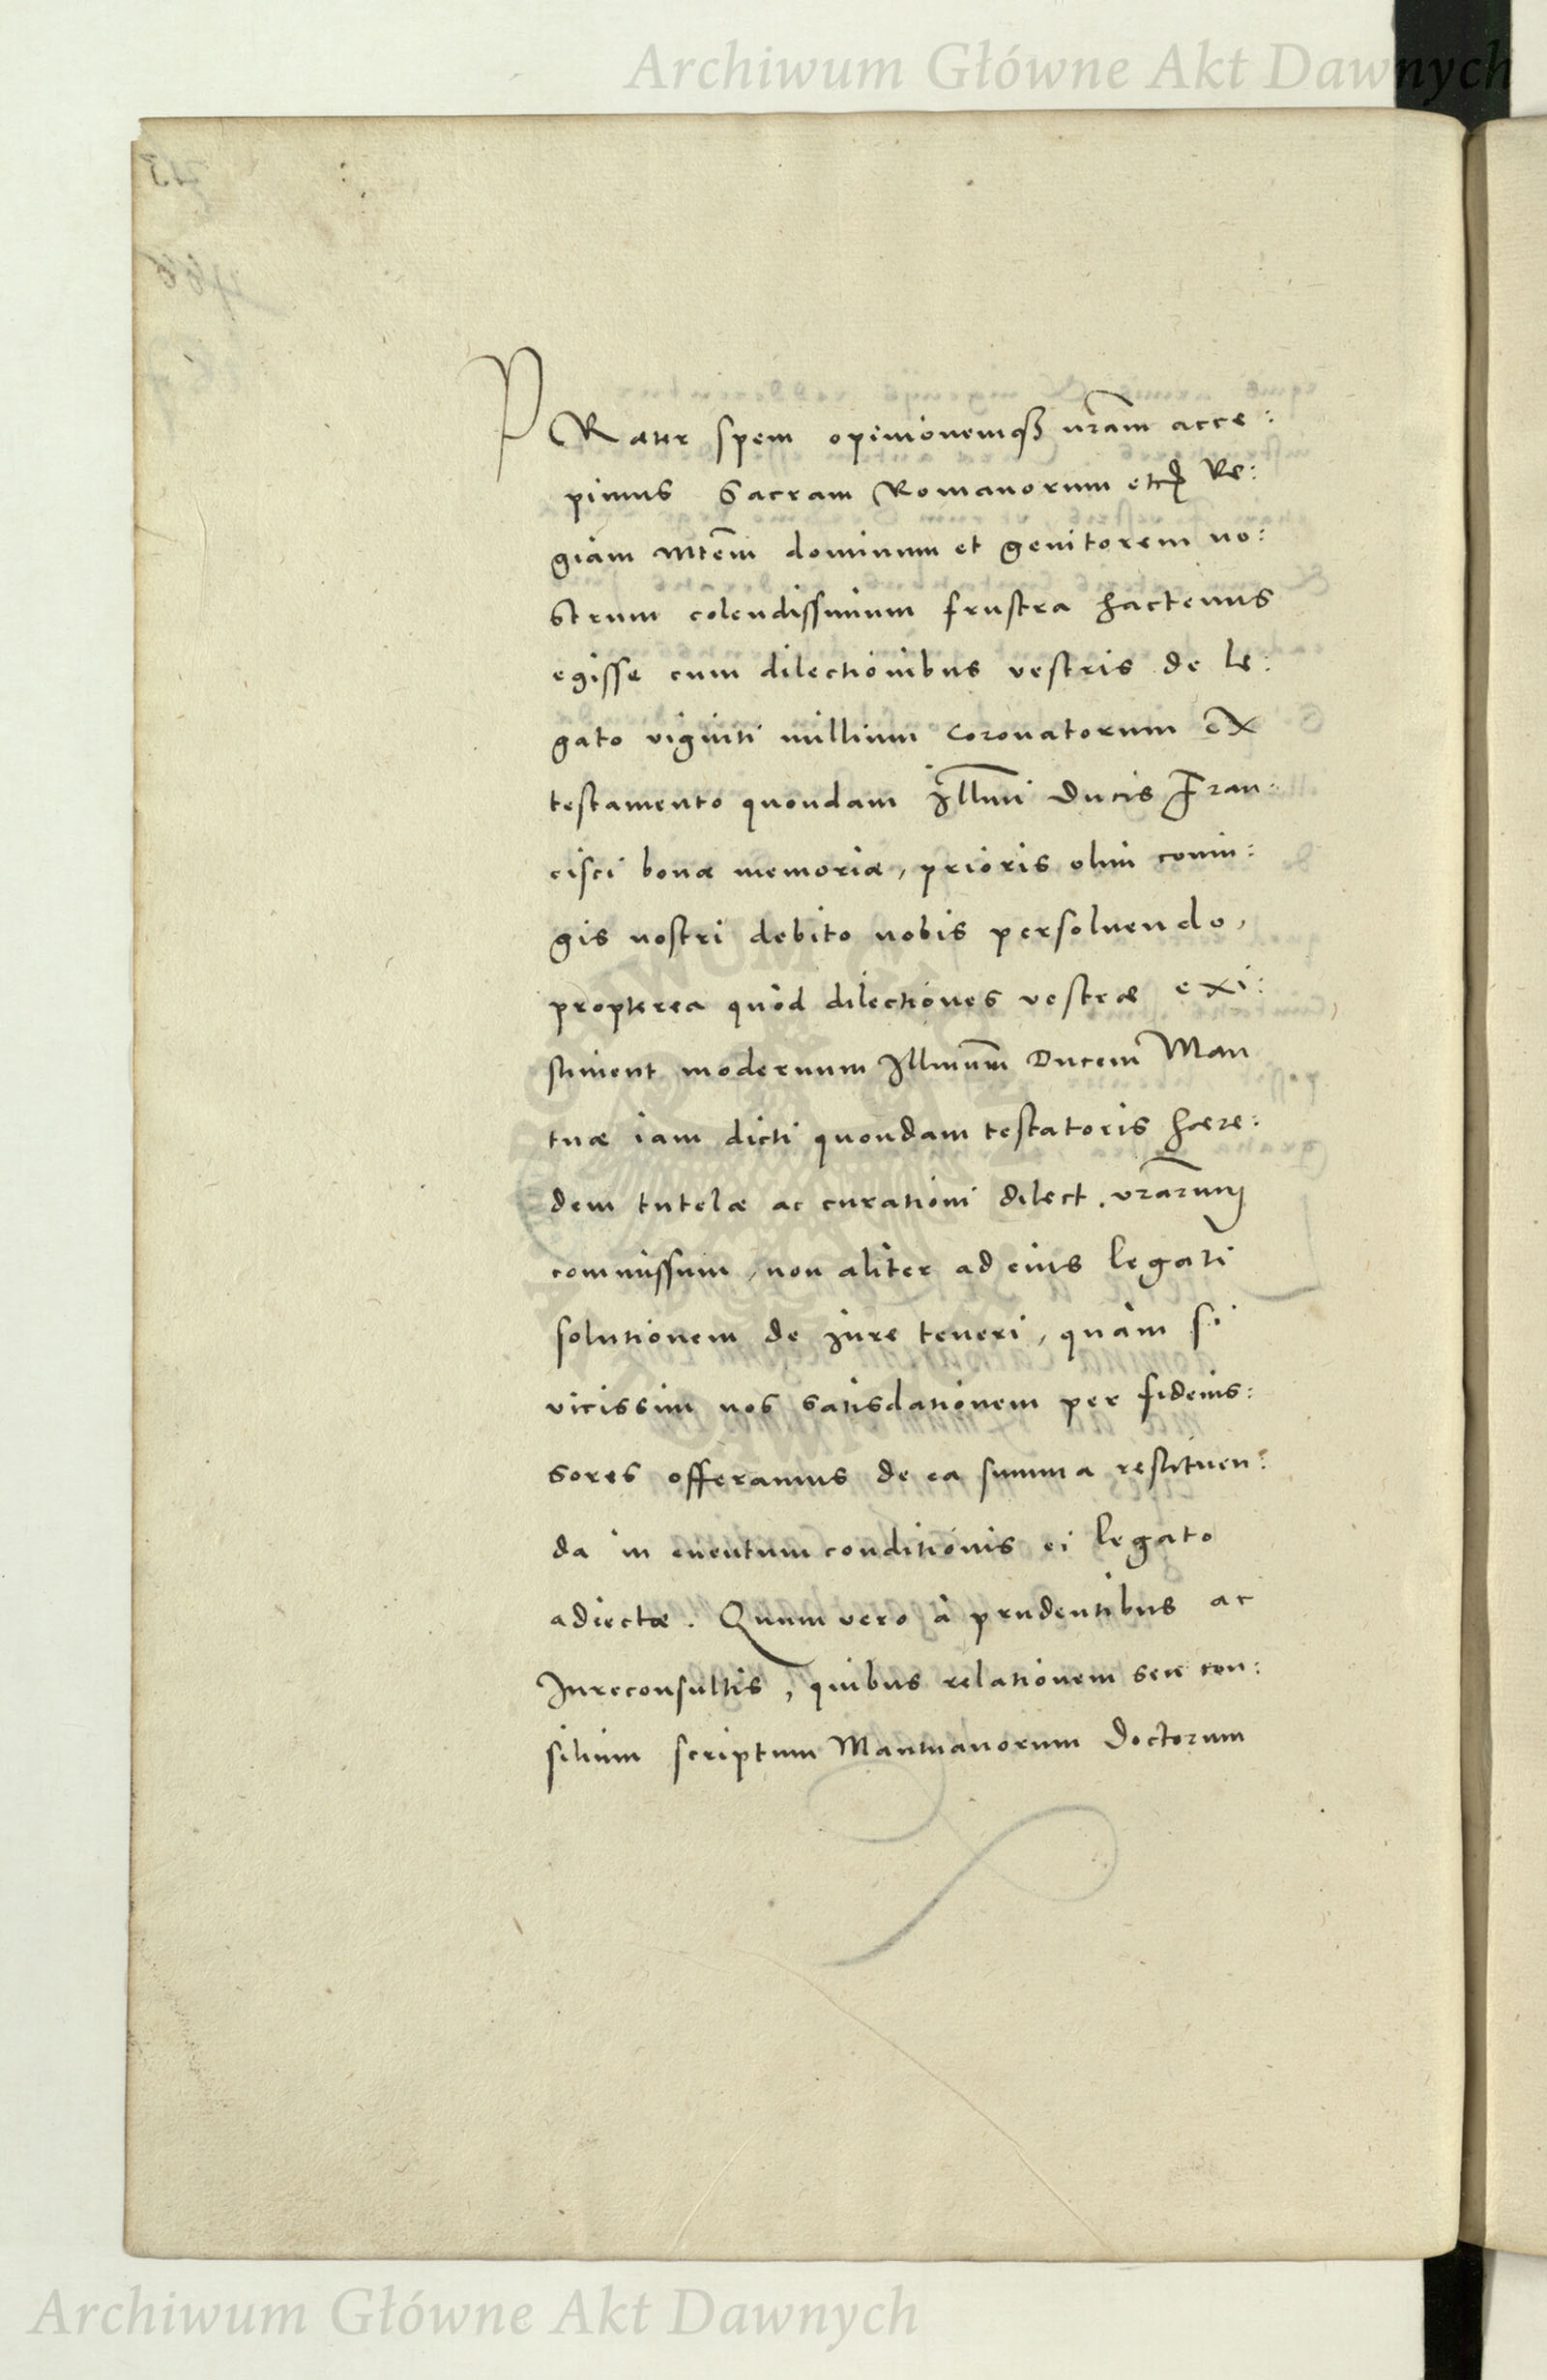 Archiwum Główne Akt Dawnych
PRæter spem opinionemqꝫ vr̃am acce:
pimus Sacram Romanorum etc̃ Re:
giam Mtem̃ dominum et genitorem no:
strum colendissimum frustra hactenus
egisse cum dilectionibus vestris de le:
gato viginti millium Coronatorum ex
testamento quondam Illm̃i Ducis Fran:
cisci bonæ memoriæ, prioris olim coniu:
gis nostri debito nobis persoluendo,
propterea quòd dilectiones vestræ exi:
stiment modernum Illmum̃ Ducem Man
tuæ iam dicti quondam testatoris hære:
dem tutelæ ac curationi dilect. vr̃arum
commissum, non aliter ad eius legati
solutionem de iure teneri, quàm si
vicissim nos satisdationem per fideius:
sores offeramus de ea summa restituen:
da in euentum conditionis ei legato
adiectæ. Quum vero à prudentibus ac
Iureconsultis, quibus relationem seu con:
silium scriptum Mantuanorum Doctorum
Archiwum Główne Akt Dawnych